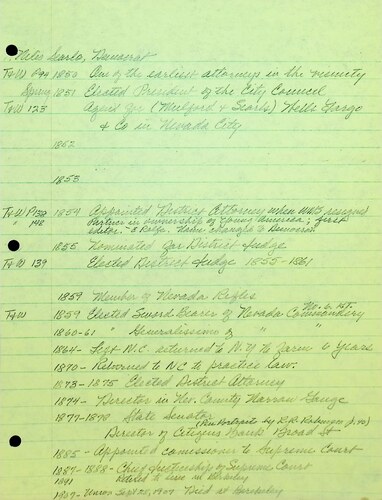 Niles Searls, Democrat
T&W P94 1850 One of the earliest attorneys in the vicinity
Spring 1851 Elected President of the City Council
T&W 123 Agent for (Mulford & Searls) Wells Fargo
& Co in Nevada City
1852
1853
T&W P132 1854 Appointed District Attorney when WMS resigned
" 148 Partner in ownership of Young America; first
editor. - S Rolfe. Name changed to Democrat
1855 Nominated for District Judge
T&W 139 Elected District Judge 1855-1861
1859 Member of Nevada Rifles
T&W 1859 Elected Sword Bearer of Nevada Commandery No. 6. Kt.
1860-61 " Generalissimo of " "
1864- Left N.C. returned to N.Y to farm 6 years
1870- Returned to NC to practice law.
1873-1875 Elected District Attorney
1874- Director in Nev. County Narrow Gauge
1877-1878 State Senator
(Pen Portraits by R.R.
Director of Citizens Bank Broad St
1885- Appointed comissioner to Supreme Court
1887-1888- Chief Justiceship of Supreme Court
1891 Retired to live in Berkeley
1907- Union Died at Berkeley